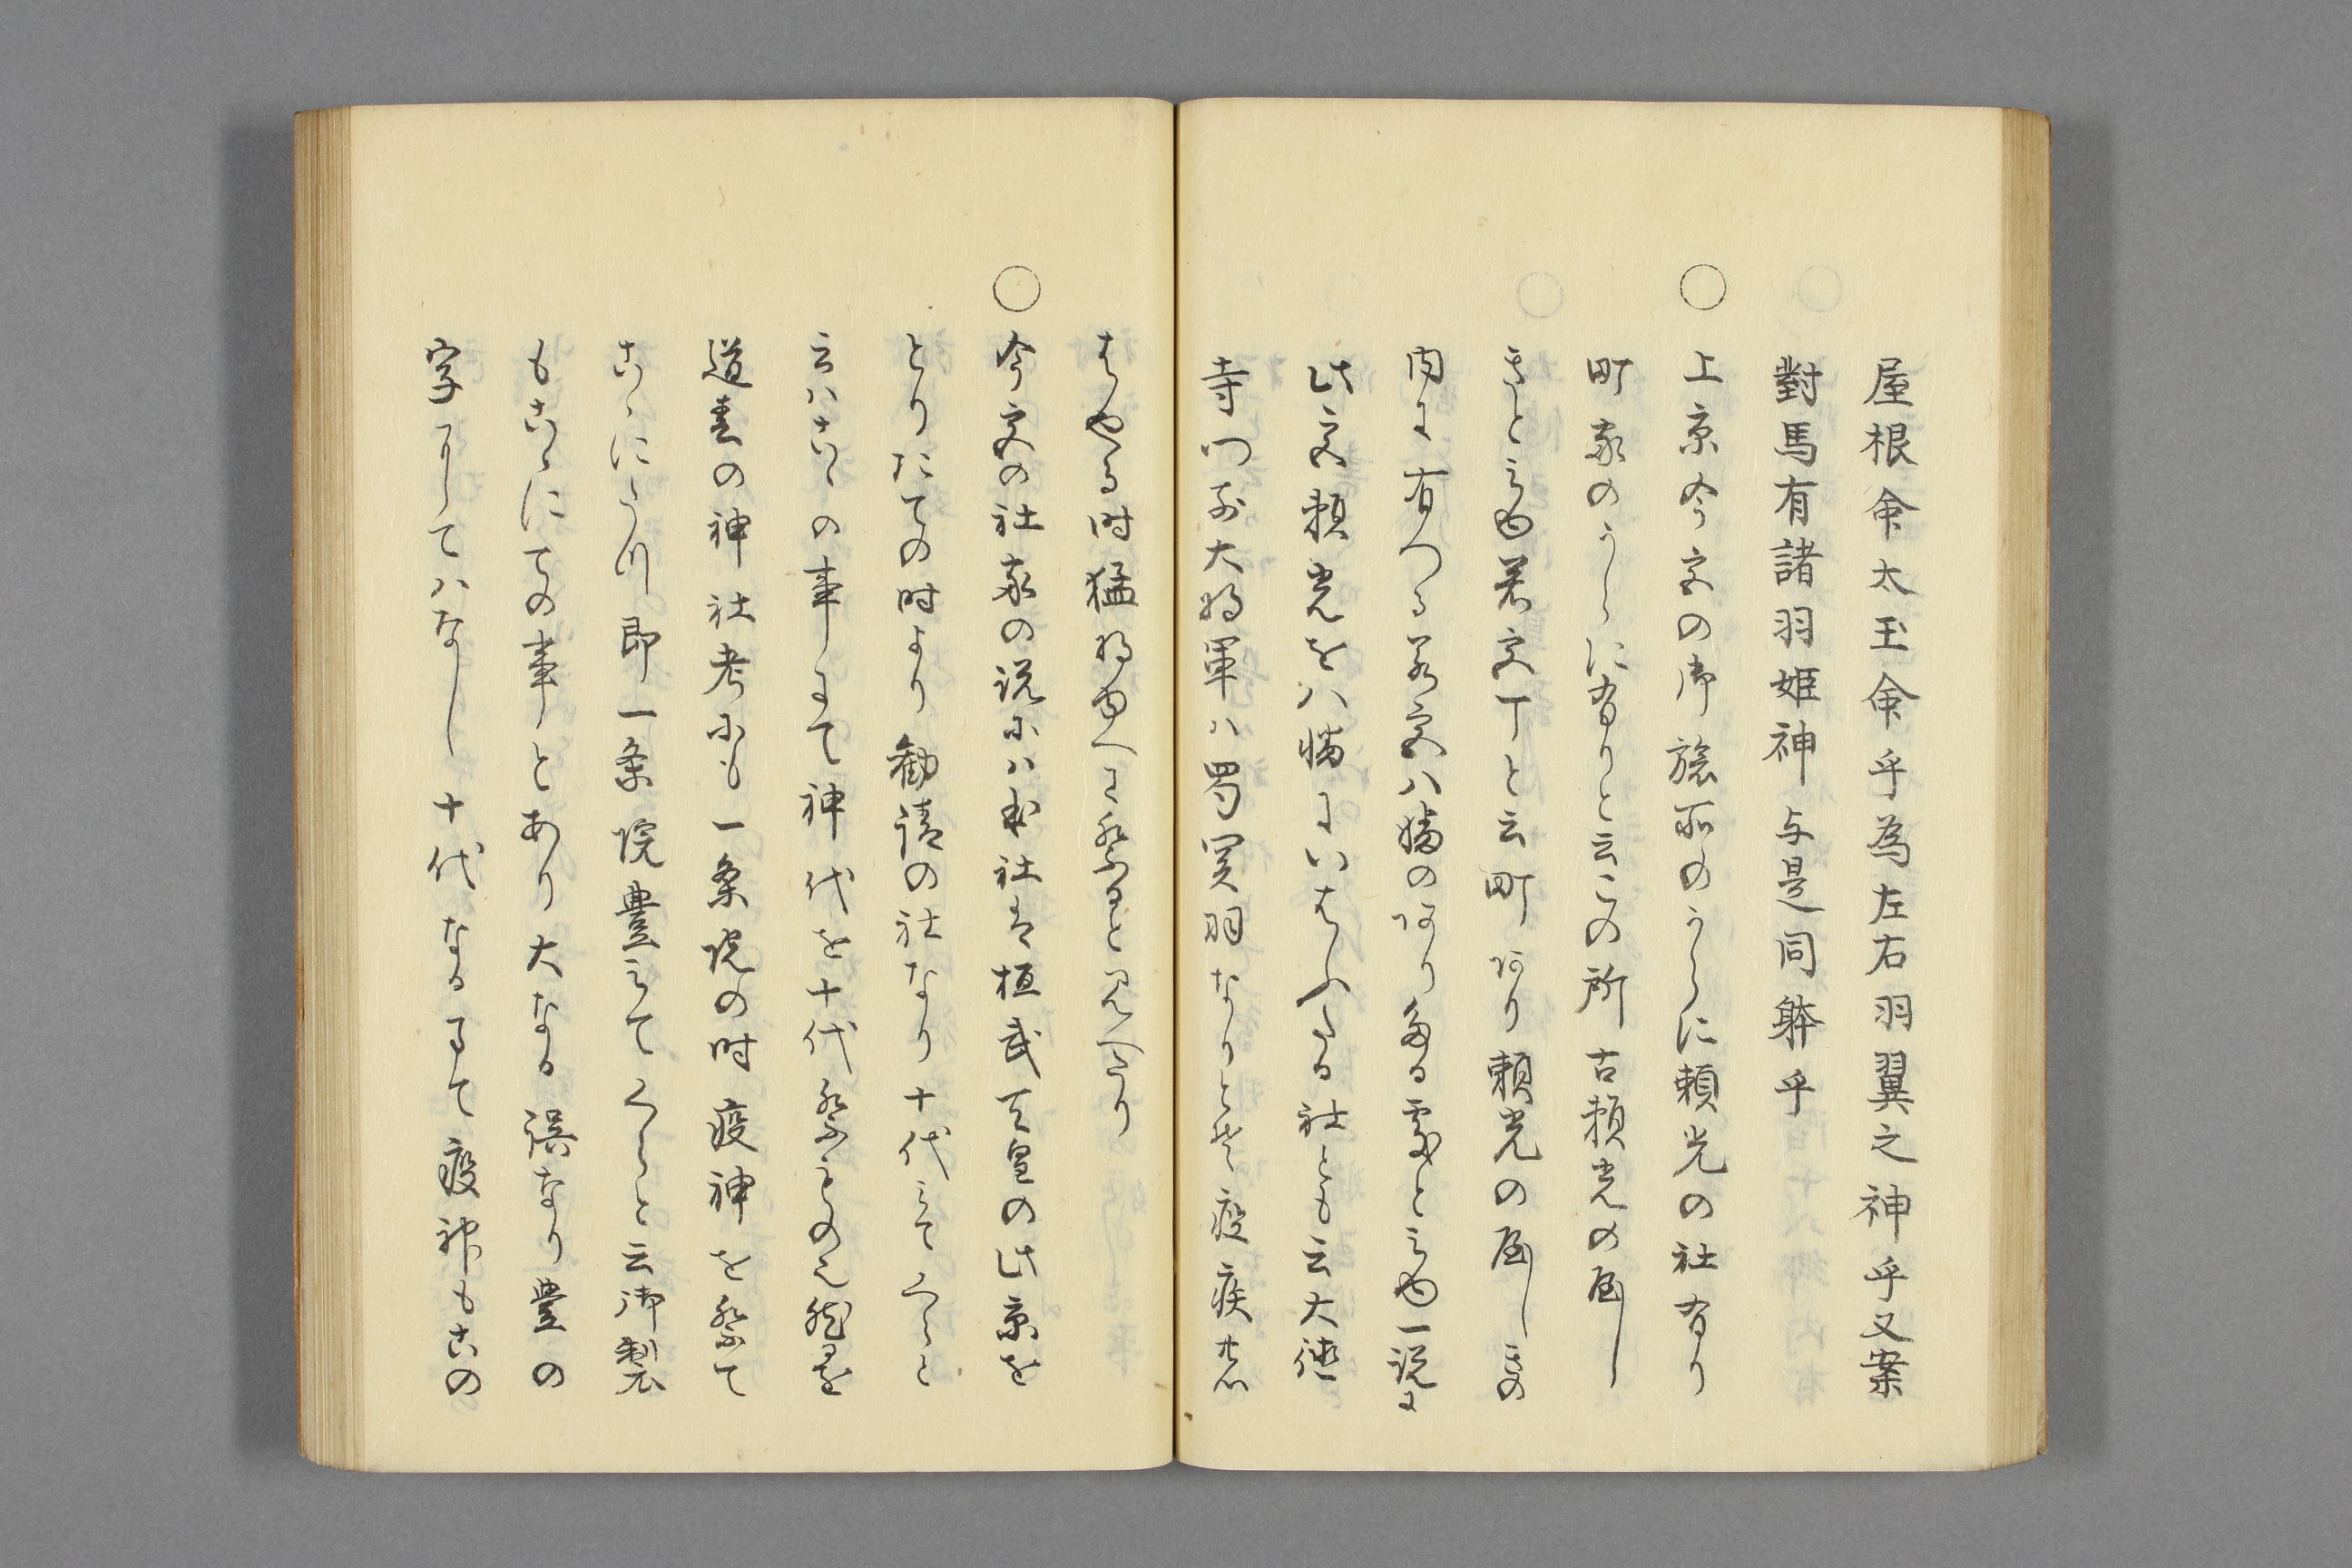 屋根命太玉命乎為左右羽翼之神乎又案
對馬有諸羽姫神与是同躰乎
○上京今宮の御旅所のうしろに頼光の社有り
町家のうしろに有りと云この所古頼光の屋し
きと云也若宮丁と云町有り頼光の屋しきの
内に有つる若宮八幡のありたる所と云也一説に
此宮頼光を八幡にいはふたる社とも云大徳
寺門前大将軍ハ蜀関羽なりとそ疫疾なと
はやる時猛将ゆへに祭ると見へたり
○今宮の社家の説にハ本社は桓武天皇の此京を
とりたての時より勧請の社なり十代にてくらと
云ハこゝの事にて神代を十代祭るの元起を
道春の神社考にも一条院の時疫神を祭て
こゝにうつ川即一条院豊にてくらと云御製
もこゝにての事とあり大なる誤なり豊の
字にしてハなし十代なるにて疫神もこの